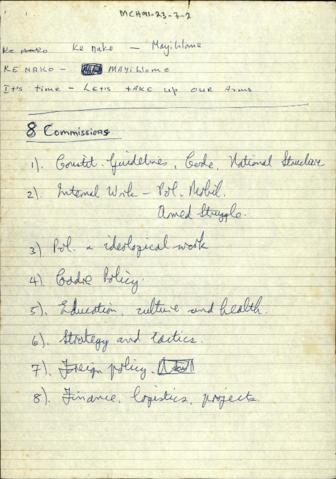 MCH91-23-7-2
Ke nako Ke nako — Mayihlome
KE NAKO — MAYIHLOME
It's time — Let's take up our Arms
8 Commissions
1). Constit. Guidelines, Code, National Structure
2). Internal Work — Pol. Mobil.
Armed Struggle.
3) Pol. & ideological work
4) Cadre Policy.
5). Education, culture and health.
6). Strategy and tactics.
7). Foreign policy.
8). Finance, logistics, projects.